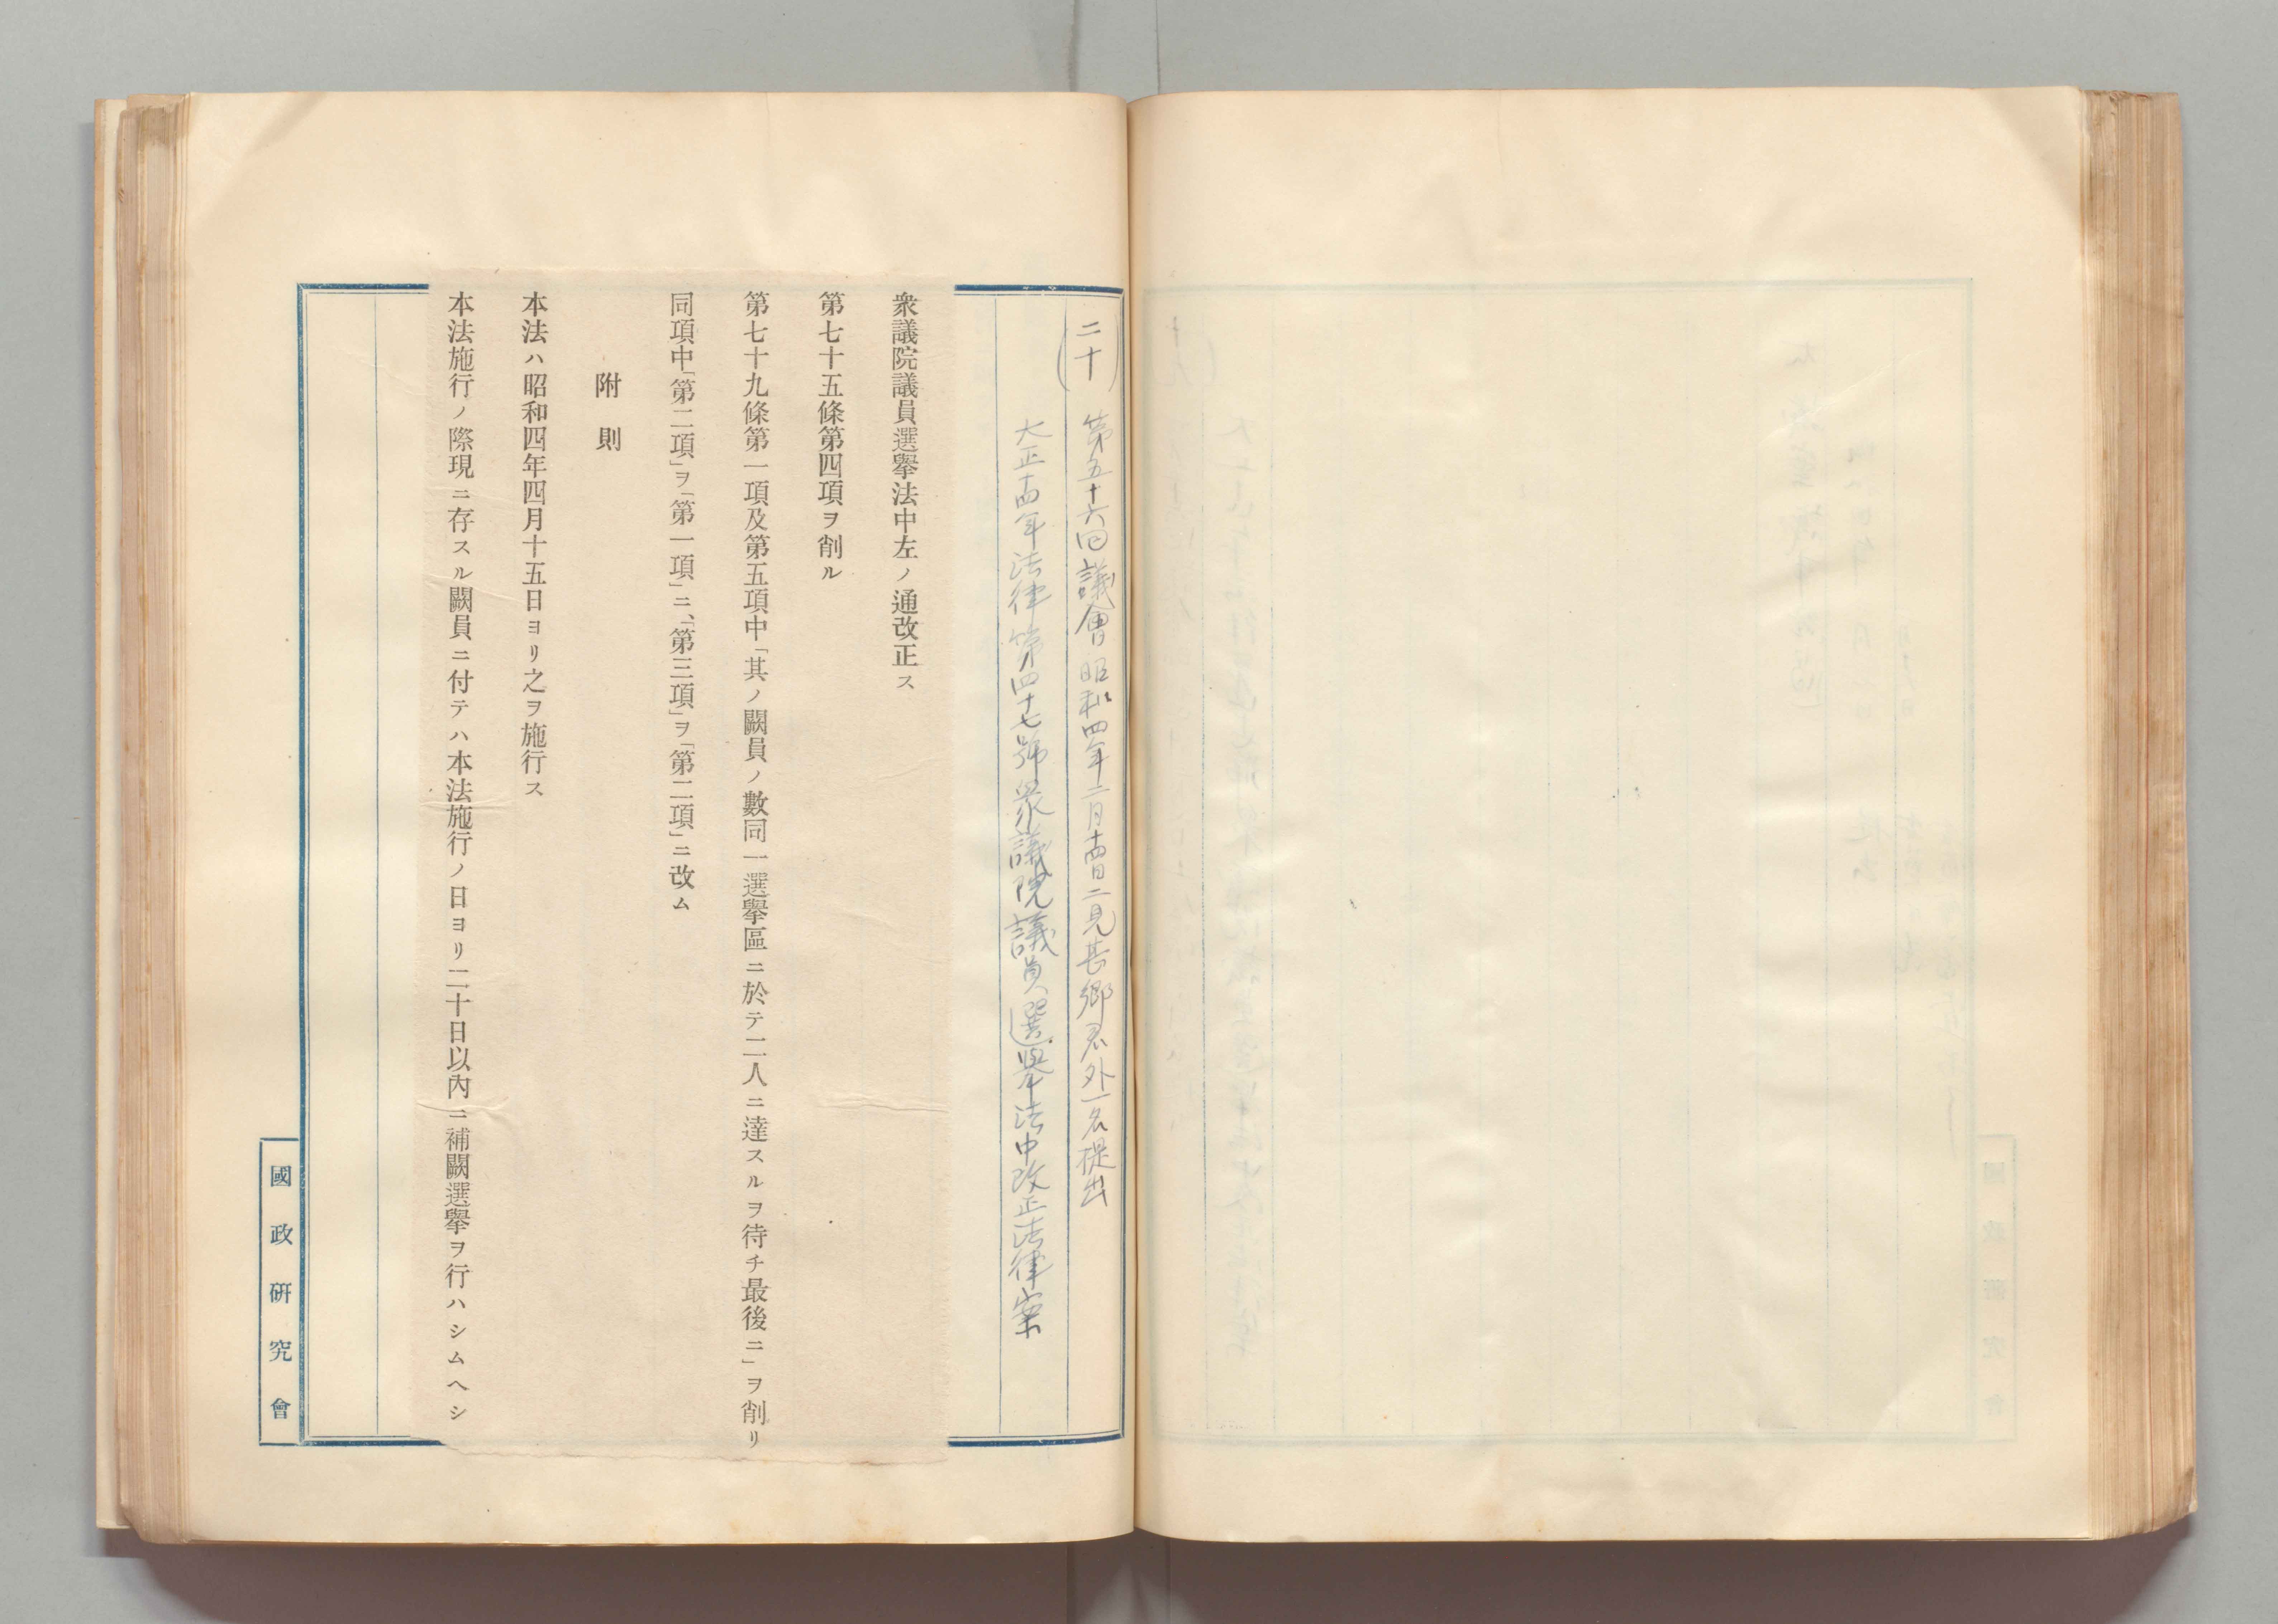 (二十) 第五十六回議會昭和四年二月十四日二見甚郷君外一名提出
大正十四年法律第四十七號衆議院議員選擧法中改正法律案
衆議院議員選擧法中左ノ通改正ス
第七十五條第四項ヲ削ル
第七十九條第一項及第五項中「其ノ闕員ノ數同一選擧區ニ於テ二人ニ達スルヲ待チ最後ニ」ヲ削リ
同項中「第二項」ヲ「第一項」ニ、「第三項」ヲ「第二項」ニ改ム
附則
本法ハ昭和四年四月十五日ヨリ之ヲ施行ス
本法施行ノ際現ニ存スル闕員ニ付テハ本法施行ノ日ヨリ二十日以內ニ補闕選擧ヲ行ハシムヘシ
國政研究會